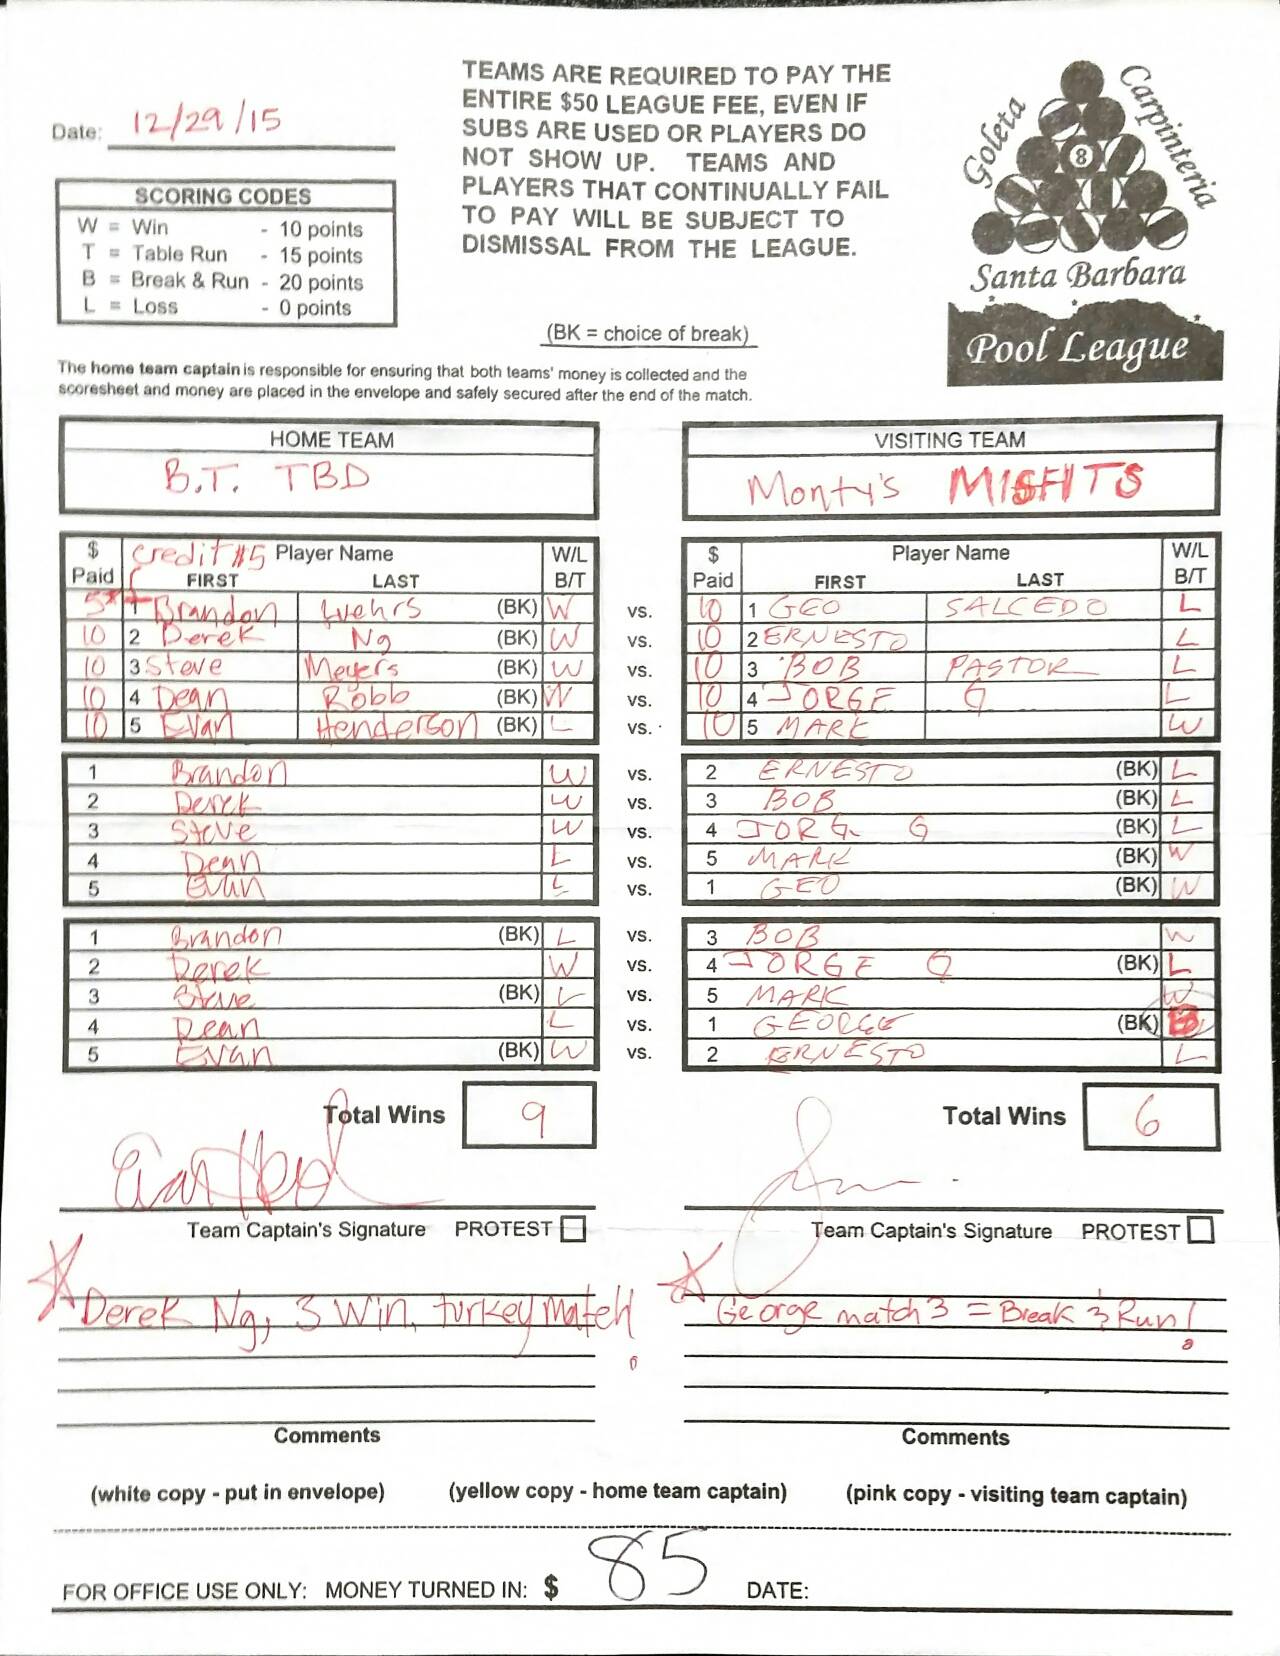 Date: 12/29/15
TEAMS ARE REQUIRED TO PAY THE
ENTIRE $50 LEAGUE FEE, EVEN IF
SUBS ARE USED OR PLAYERS DO
NOT SHOW UP. TEAMS AND
PLAYERS THAT CONTINUALLY FAIL
TO PAY WILL BE SUBJECT TO
DISMISSAL FROM THE LEAGUE.
Goleta
Carpinteria
8
Santa Barbara
Pool League
SCORING CODES
W = Win - 10 points
T = Table Run - 15 points
B = Break & Run - 20 points
L = Loss - 0 points
(BK = choice of break)
The home team captain is responsible for ensuring that both teams' money is collected and the
scoresheet and money are placed in the envelope and safely secured after the end of the match.
HOME TEAM
B.T. TBD
VISITING TEAM
Monty's MISFITS
$ Paid Credit #5 Player Name FIRST LAST W/L B/T
$ Paid Player Name FIRST LAST W/L B/T
5* 1 Brandon Wehrs (BK) W vs. 10 1 GEO SALCEDO L
10 2 Derek Ng (BK) W vs. 10 2 ERNESTO L
10 3 Steve Meyers (BK) W vs. 10 3 BOB PASTOR L
10 4 Dean Robb (BK) W vs. 10 4 JORGE G L
10 5 Evan Henderson (BK) L vs. 10 5 MARK W
1 Brandon W vs. 2 ERNESTO (BK) L
2 Derek W vs. 3 BOB (BK) L
3 Steve W vs. 4 JORG G (BK) L
4 Dean L vs. 5 MARK (BK) W
5 Evan L vs. 1 GEO (BK) W
1 Brandon (BK) L vs. 3 BOB W
2 Derek W vs. 4 JORGE G (BK) L
3 Steve (BK) L vs. 5 MARK W
4 Dean L vs. 1 GEORGE (BK) B
5 Evan (BK) W vs. 2 ERNESTO L
Total Wins 9
Total Wins 6
Team Captain's Signature PROTEST
Team Captain's Signature PROTEST
Derek Ng, 3 Win, turkey match!
George match 3 = Break & Run!
Comments
Comments
(white copy - put in envelope) (yellow copy - home team captain) (pink copy - visiting team captain)
FOR OFFICE USE ONLY: MONEY TURNED IN: $ 85 DATE: